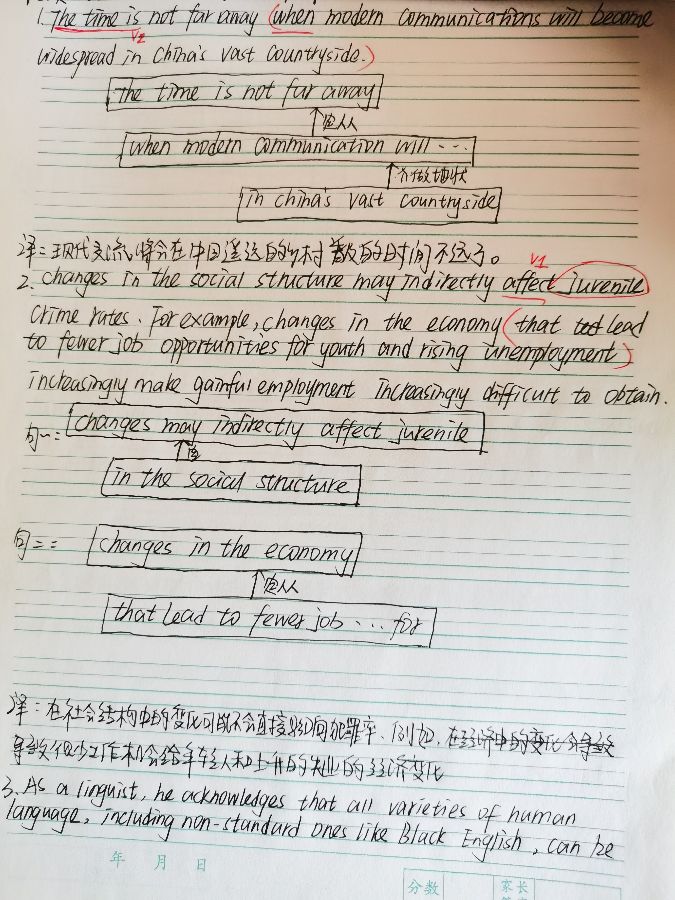 1. The time is not far away (when modern communications will become
V2
widespread in China's vast countryside.)
the time is not far away
定从
when modern communication will ...
介做地状
in china's vast countryside
译：现代交流将会在中国遥远的农村普及的时间不远了。
V1
2. changes in the social structure may indirectly affect juvenile
crime rates. For example, changes in the economy (that lead
to fewer job opportunities for youth and rising unemployment)
increasingly make gainful employment increasingly difficult to obtain.
句一： changes may indirectly affect juvenile
定
in the social structure
句二： changes in the economy
定从
that lead to fewer job ... for
译：在社会结构中的变化可能不会直接影响犯罪率、例如，在经济中的变化会导致
导致很少工作机会给年轻人和上升的失业的经济变化
3. As a linguist, he acknowledges that all varieties of human
language, including non-standard ones like Black English, can be
年 月 日
分数 家长